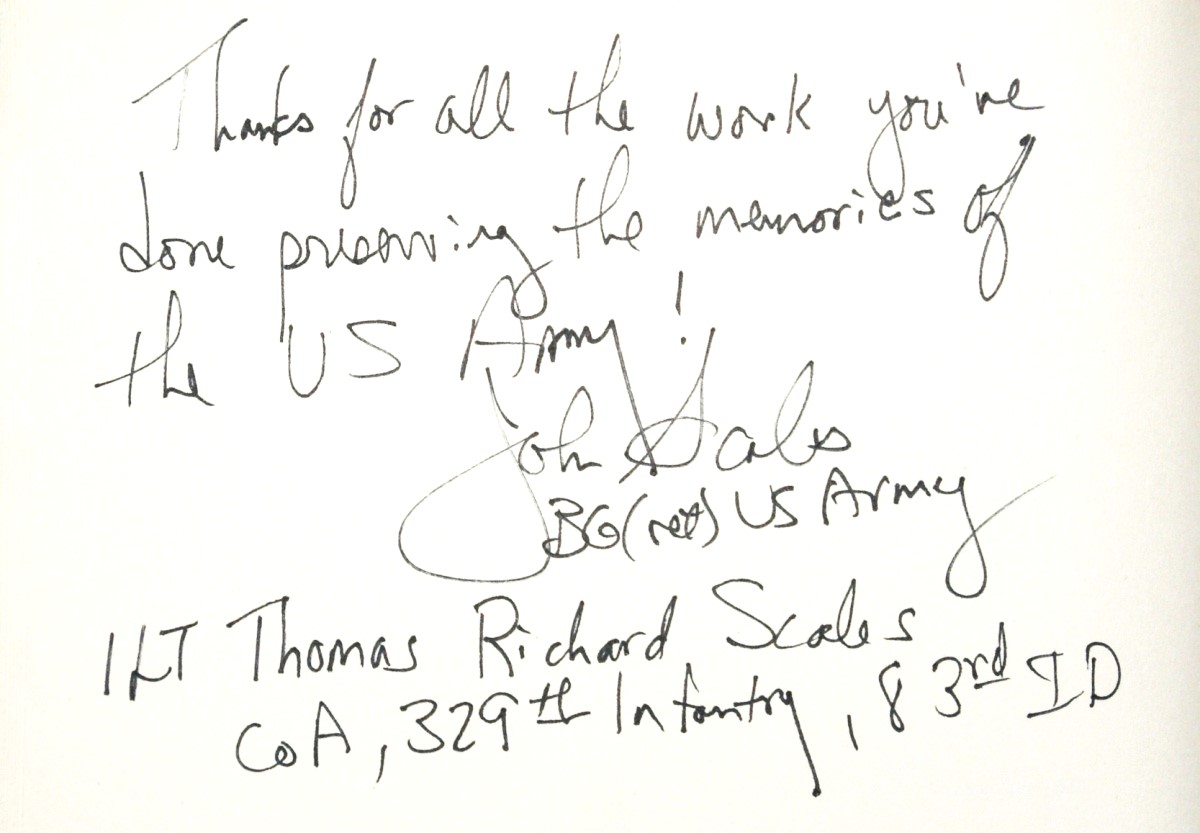 Thanks for all the work you've
done preserving the memories of
the US Army!
John Scales
BG (ret) US Army
1LT Thomas Richard Scales
Co A, 329th Infantry, 83rd ID